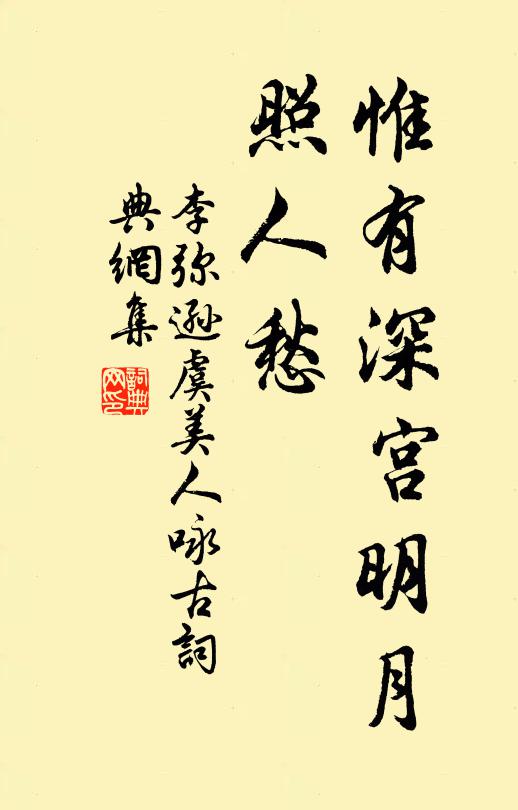 惟有深宫明月
照人愁
李弥逊虞美人咏古詞
典網集
詞典